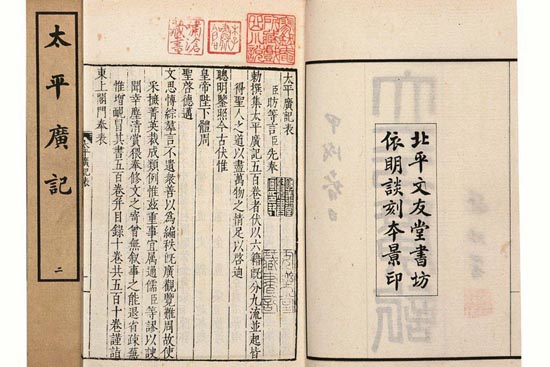 北平文友堂書坊
依明談刻本景印
太平廣記表
臣昉等言臣先奉
勅撰集太平廣記五百卷者伏以六籍既分九流並起皆
得聖人之道以盡萬物之情足以啓迪
聰明鑒照今古伏惟
皇帝陛下體周
聖啓德邁
文思博綜羣言不遺衆善以為編秩既廣觀覽難周故使
采摭菁英裁成類例惟兹重事宜屬通儒臣等謬以諛
聞幸塵清賞猥奉修文之寄曾無叙事之能退省疎蕪
惟增靦冒其書五百卷并目錄十卷共五百十卷謹詣
東上閤門奉表
太平廣記
二